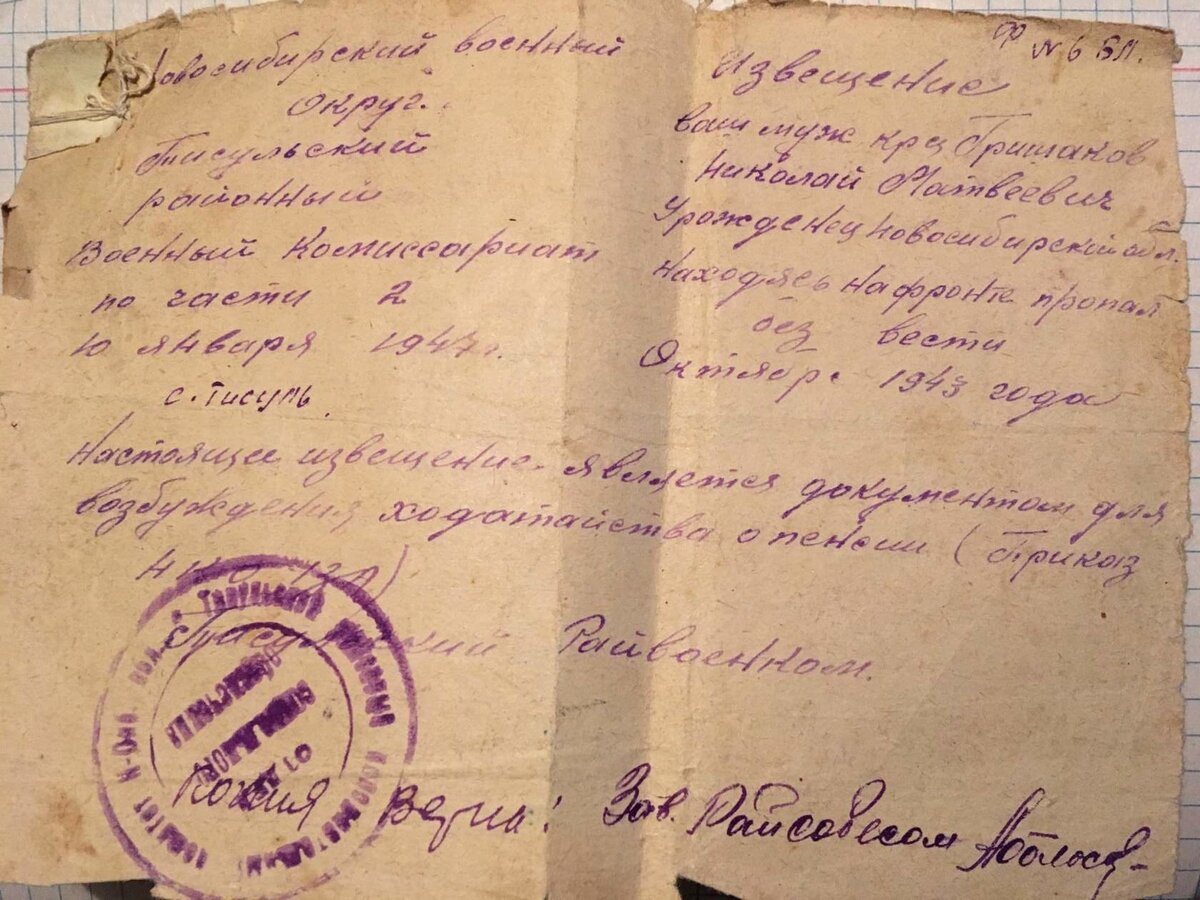 Новосибирский военный
округ.
Тисульский
районный
Военный Комиссариат
по части 2
10 января 1947 г.
с. Тисуль.
Ф №6 БП.
Извещение
ваш муж крц Гришаков
Николай Матвеевич
Урожденец Новосибирский обл.
Находясь на фронте пропал
без вести
Октябрь 1943 года
Настоящее извещение является документом для
возбуждения ходатайства о пенсии (Приказ
НКО
Тисульский Райвоенком.
Копия Верна: Зав. Райсобесом